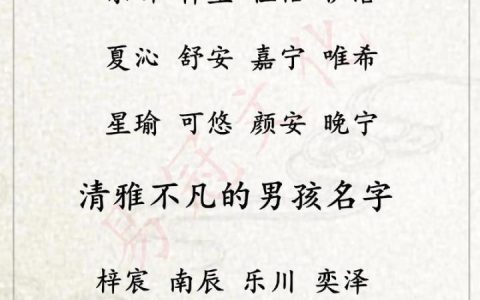 夏沁 舒安 嘉宁 唯希
星瑜 可悠 颜安 晚宁
清雅不凡的男孩名字
梓宸 南辰 乐川 奕泽